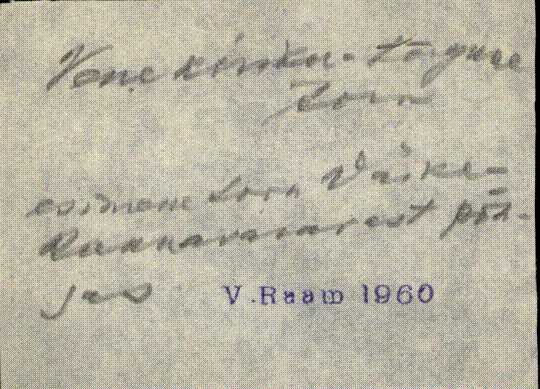 Vene kiriku-tagune
torn
esimene torn Väike-
Rannaväravast põh-
jas
V. Raam 1960